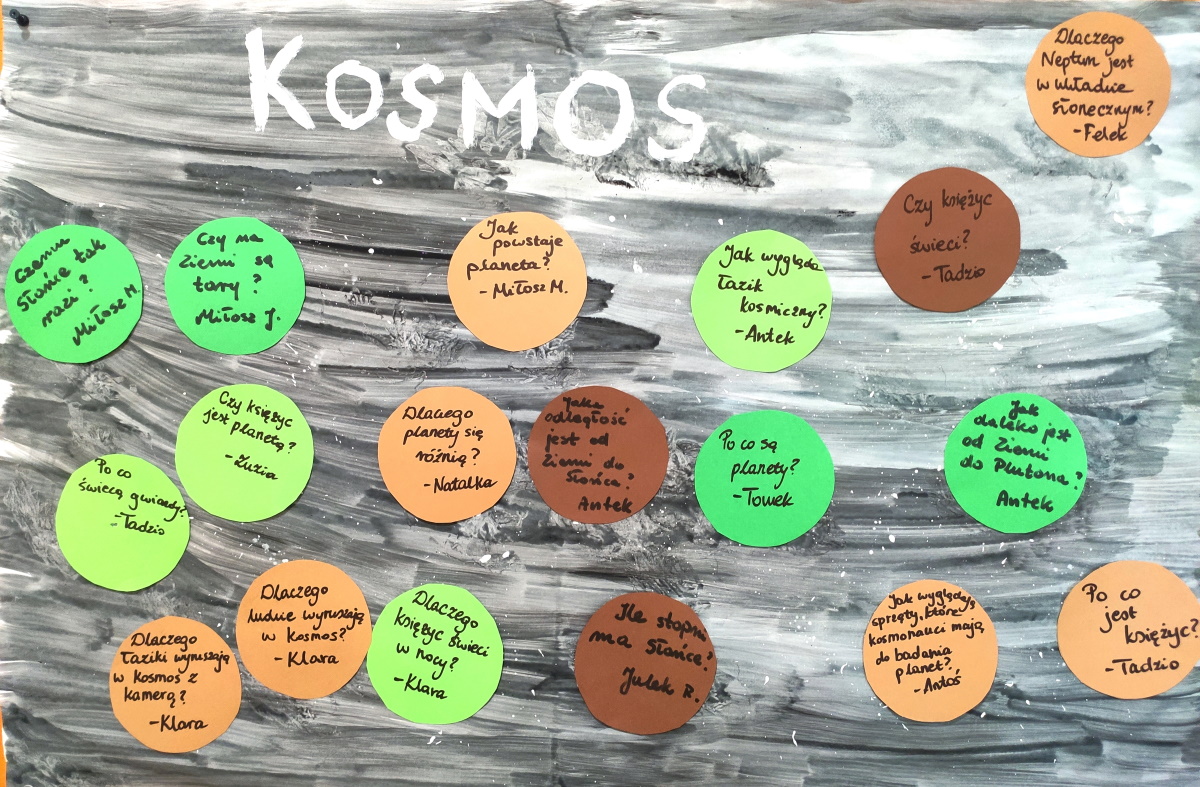 KOSMOS
Dlaczego
Neptun jest
w układzie
słonecznym?
-Felek
Czy księżyc
świeci?
-Tadzio
Czemu
Słońce tak
razi?
Miłosz M.
Czy na
Ziemi są
tory?
Miłosz J.
Jak
powstaje
planeta?
-Miłosz M.
Jak wygląda
łazik
kosmiczny?
-Antek
Czy księżyc
jest planetą?
-Zuzia
Dlaczego
planety się
różnią?
-Natalka
Jaka
odległość
jest od
Ziemi do
Słońca?
Antek
Po co są
planety?
-Tomek
Jak
daleko jest
od Ziemi
do Plutona?
Antek
Po co
świecą gwiazdy?
-Tadzio
Dlaczego
łaziki wyruszają
w kosmos z
kamerą?
-Klara
Dlaczego
ludzie wyruszają
w kosmos?
-Klara
Dlaczego
księżyc świeci
w nocy?
-Klara
Ile stopni
ma Słońce?
Julek R.
Jak wyglądają
sprzęty, które
kosmonauci mają
do badania
planet?
-Antoś
Po co
jest
księżyc?
-Tadzio